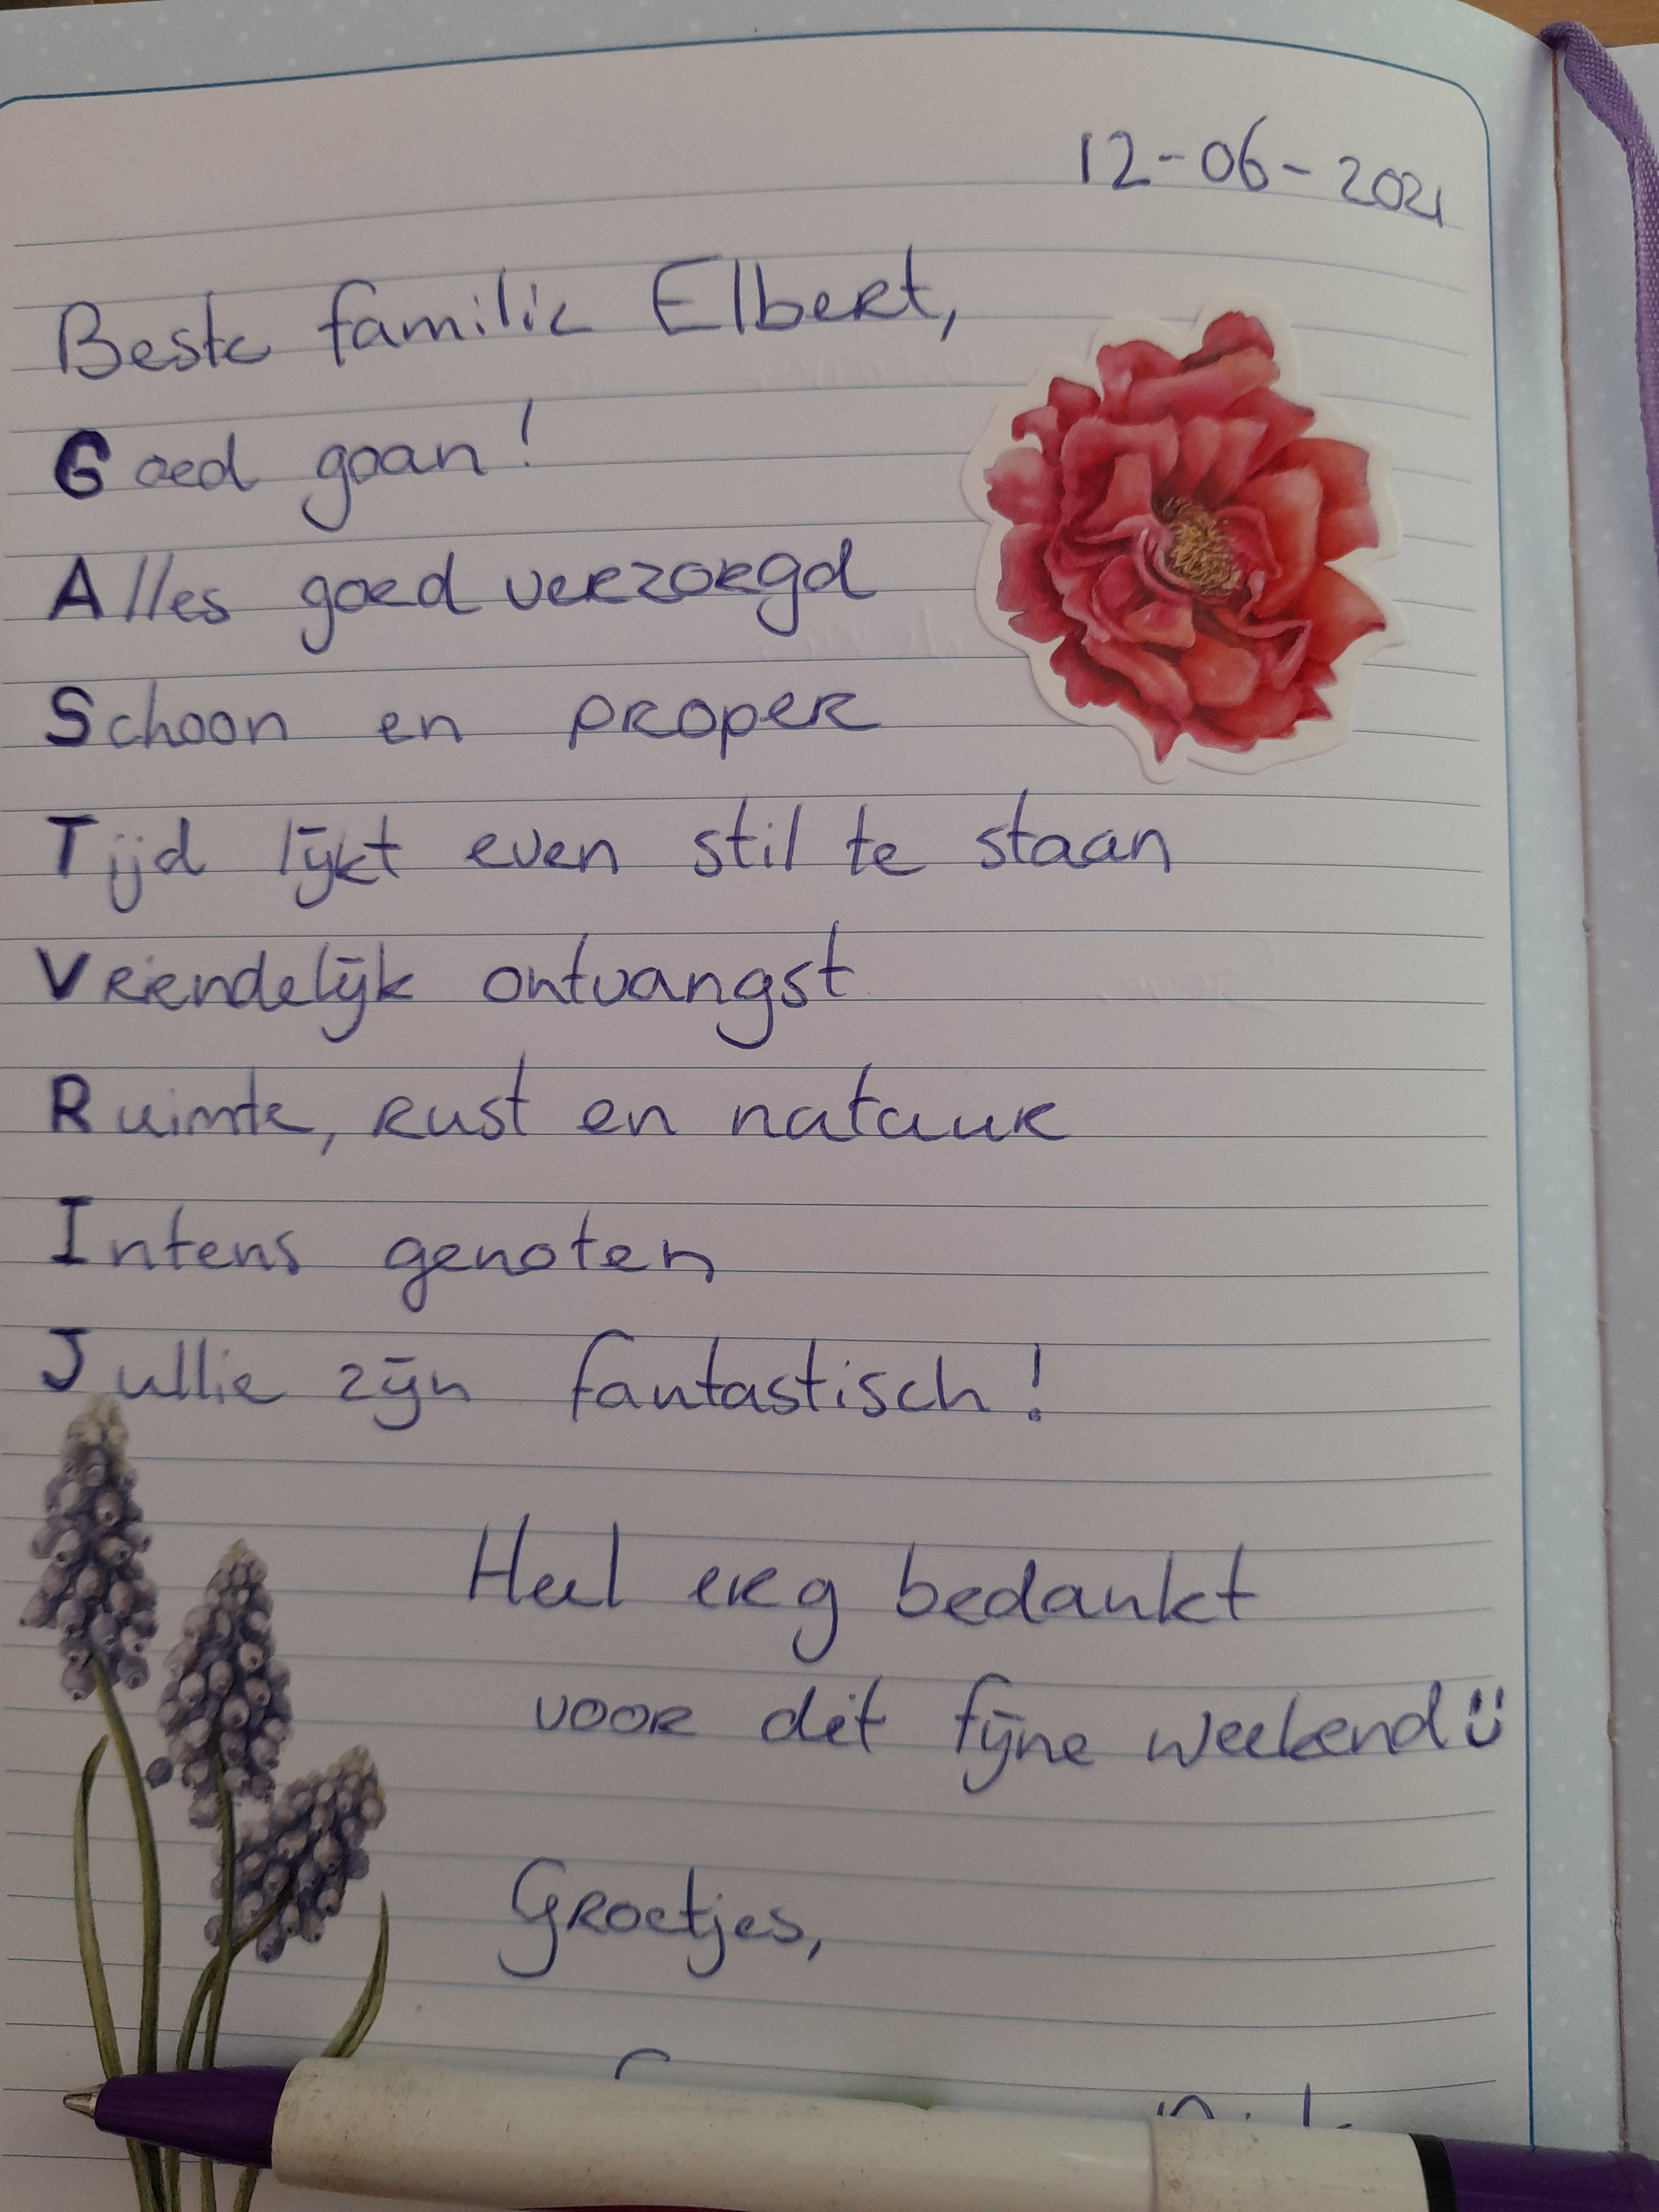 12-06-2021
Beste familie Elbert,
Goed goan!
Alles goed verzorgd
Schoon en proper
Tijd lijkt even stil te staan
Vriendelijk ontvangst
Ruimte, rust en natuur
Intens genoten
Jullie zijn fantastisch!
Heel erg bedankt
voor dit fijne weekend ü
Groetjes,